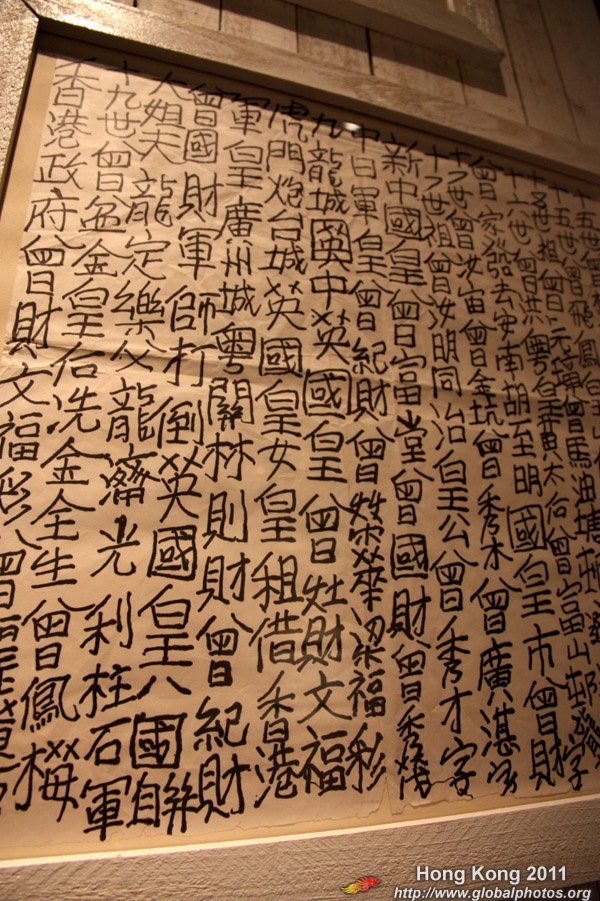 十五世曾飛鳳皇
十五世祖曾元璋曾馬油塘邨
十六世曾洪粵皇黃太后曾富山邨
曾家發去安南胡至明國皇市曾財
十七世曾汝宙曾金坑曾秀木曾廣湛字
祖曾汝明同治皇公曾秀才字
新中國皇曾富堂曾國財曾秀
中日軍皇曾紀財曾華梁福彩
九龍城中英國皇曾灶財文福
虎門炮台城英國皇女皇租借香港
軍皇廣州城粵關林則財曾紀財
曾國財軍師打倒英國皇八國聯
大姐夫龍定樂父龍濟光利柱石軍
十九世曾盆金皇后冼金全生曾鳳梅
香港政府曾財文福彩曾
Hong Kong 2011
http://www.globalphotos.org